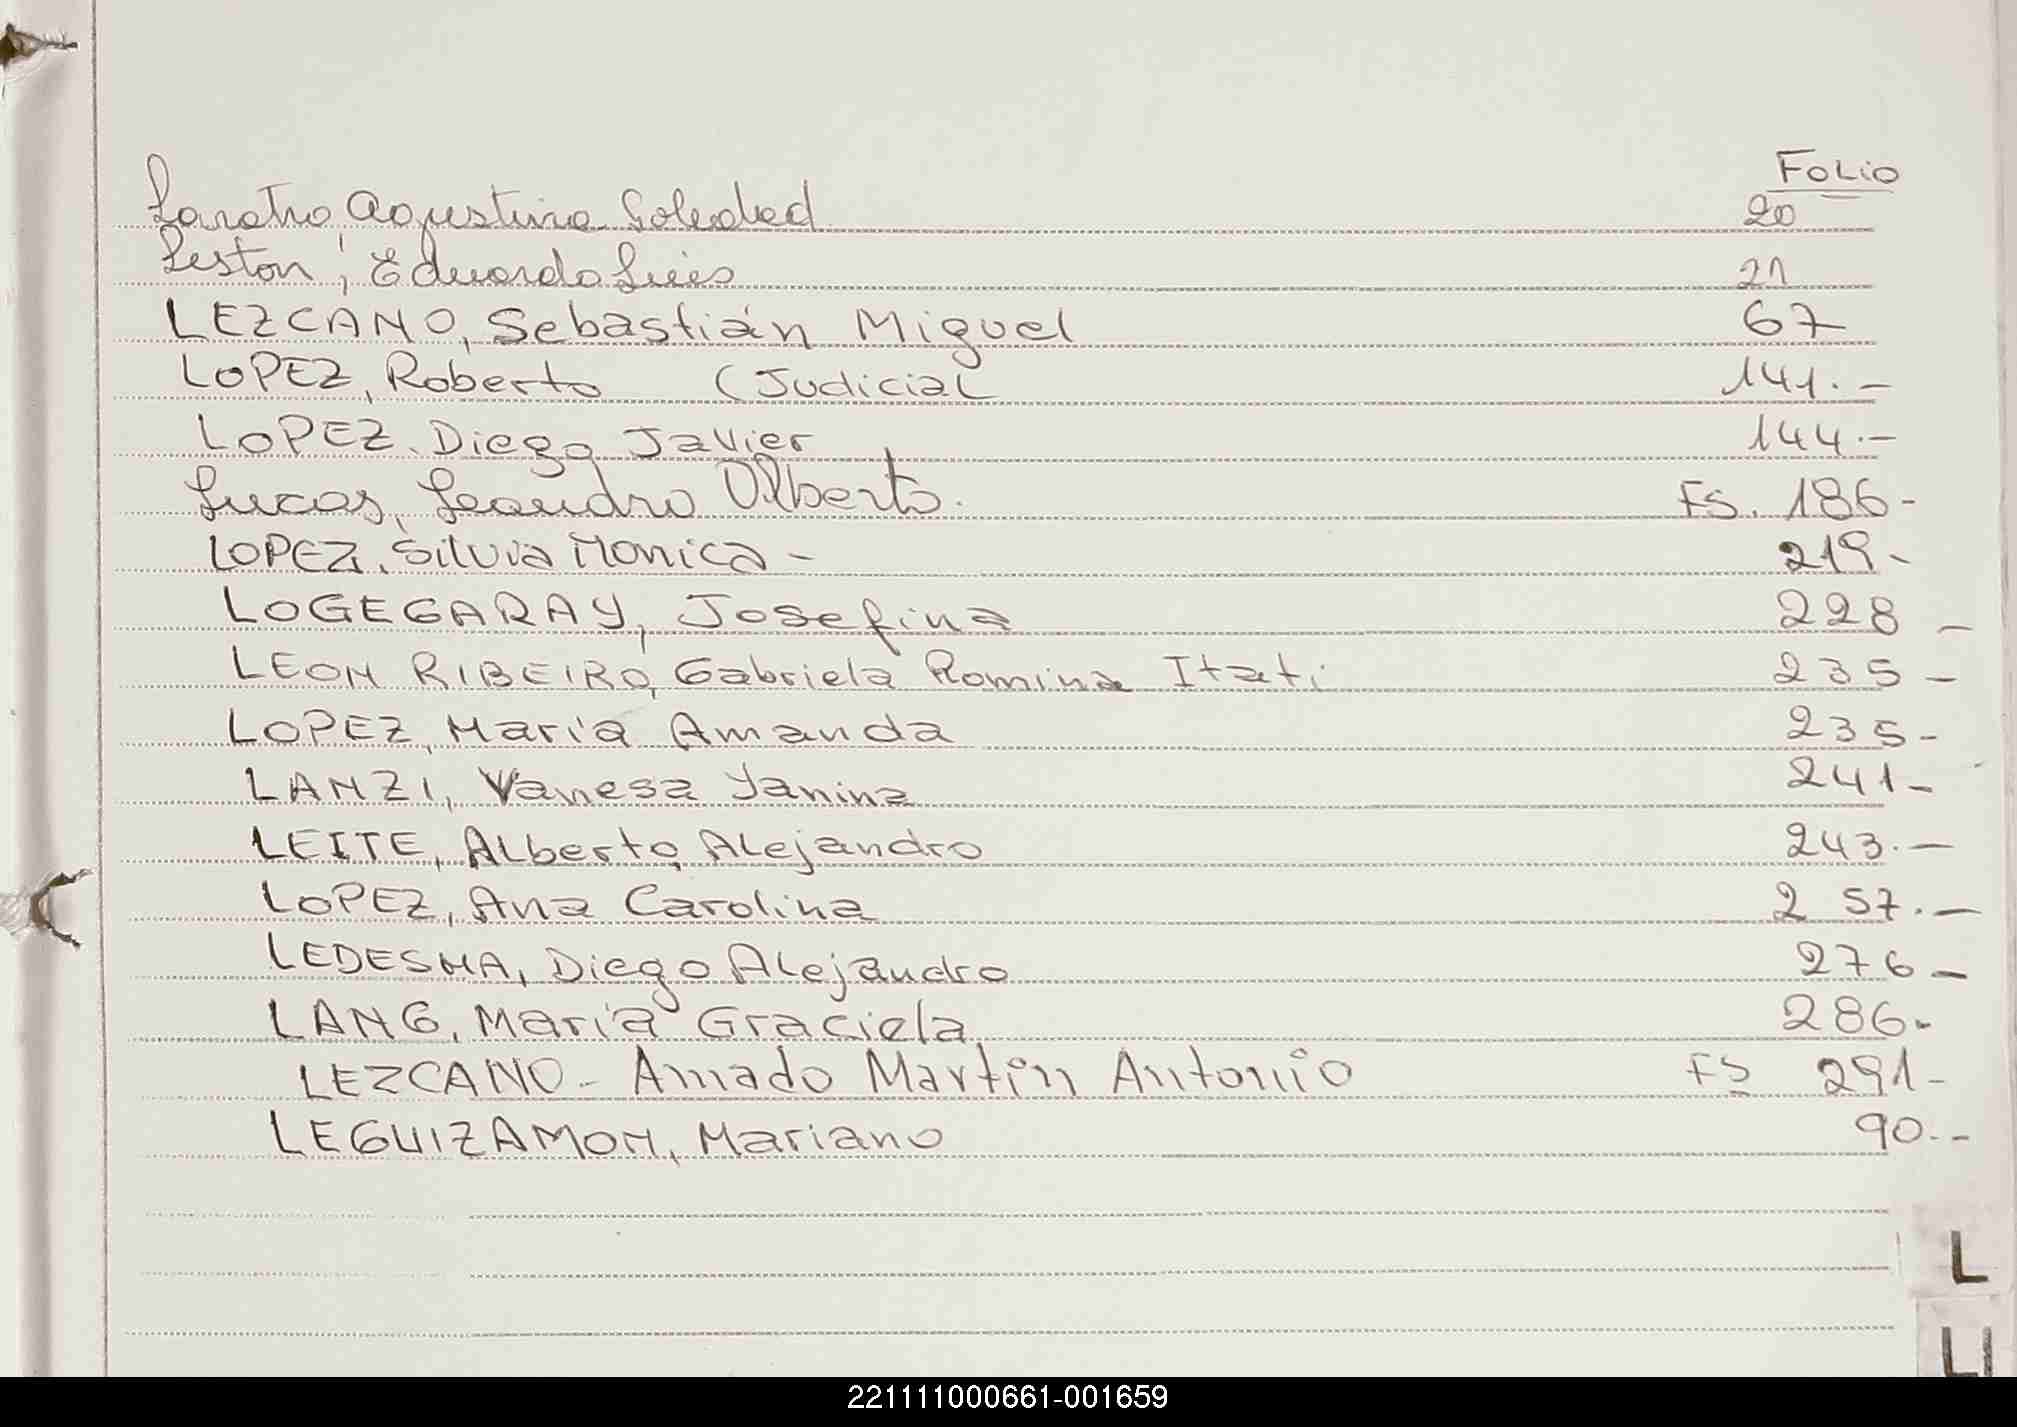 FOLIO
Laratro Agustina Soledad 20
Leston, Eduardo Luis 21
LEZCANO, Sebastián Miguel 67
LOPEZ, Roberto (Judicial 141.-
LOPEZ. Diego Javier 144.-
Lucas, Leandro Alberto. FS. 186-
LOPEZ, Silvia Monica - 219-
LOGEGARAY, Josefina 228 -
LEON RIBEIRO, Gabriela Romina Itati 235 -
LOPEZ, María Amanda 235-
LANZI, Vanesa Yanina 241-
LEITE, Alberto Alejandro 243.-
LOPEZ, Ana Carolina 2 57.-
LEDESMA, Diego Alejandro 276 -
LANG, María Graciela 286-
LEZCANO - Amado Martín Antonio FS 291-
LEGUIZAMON, Mariano 90.-
L
LL
221111000661-001659